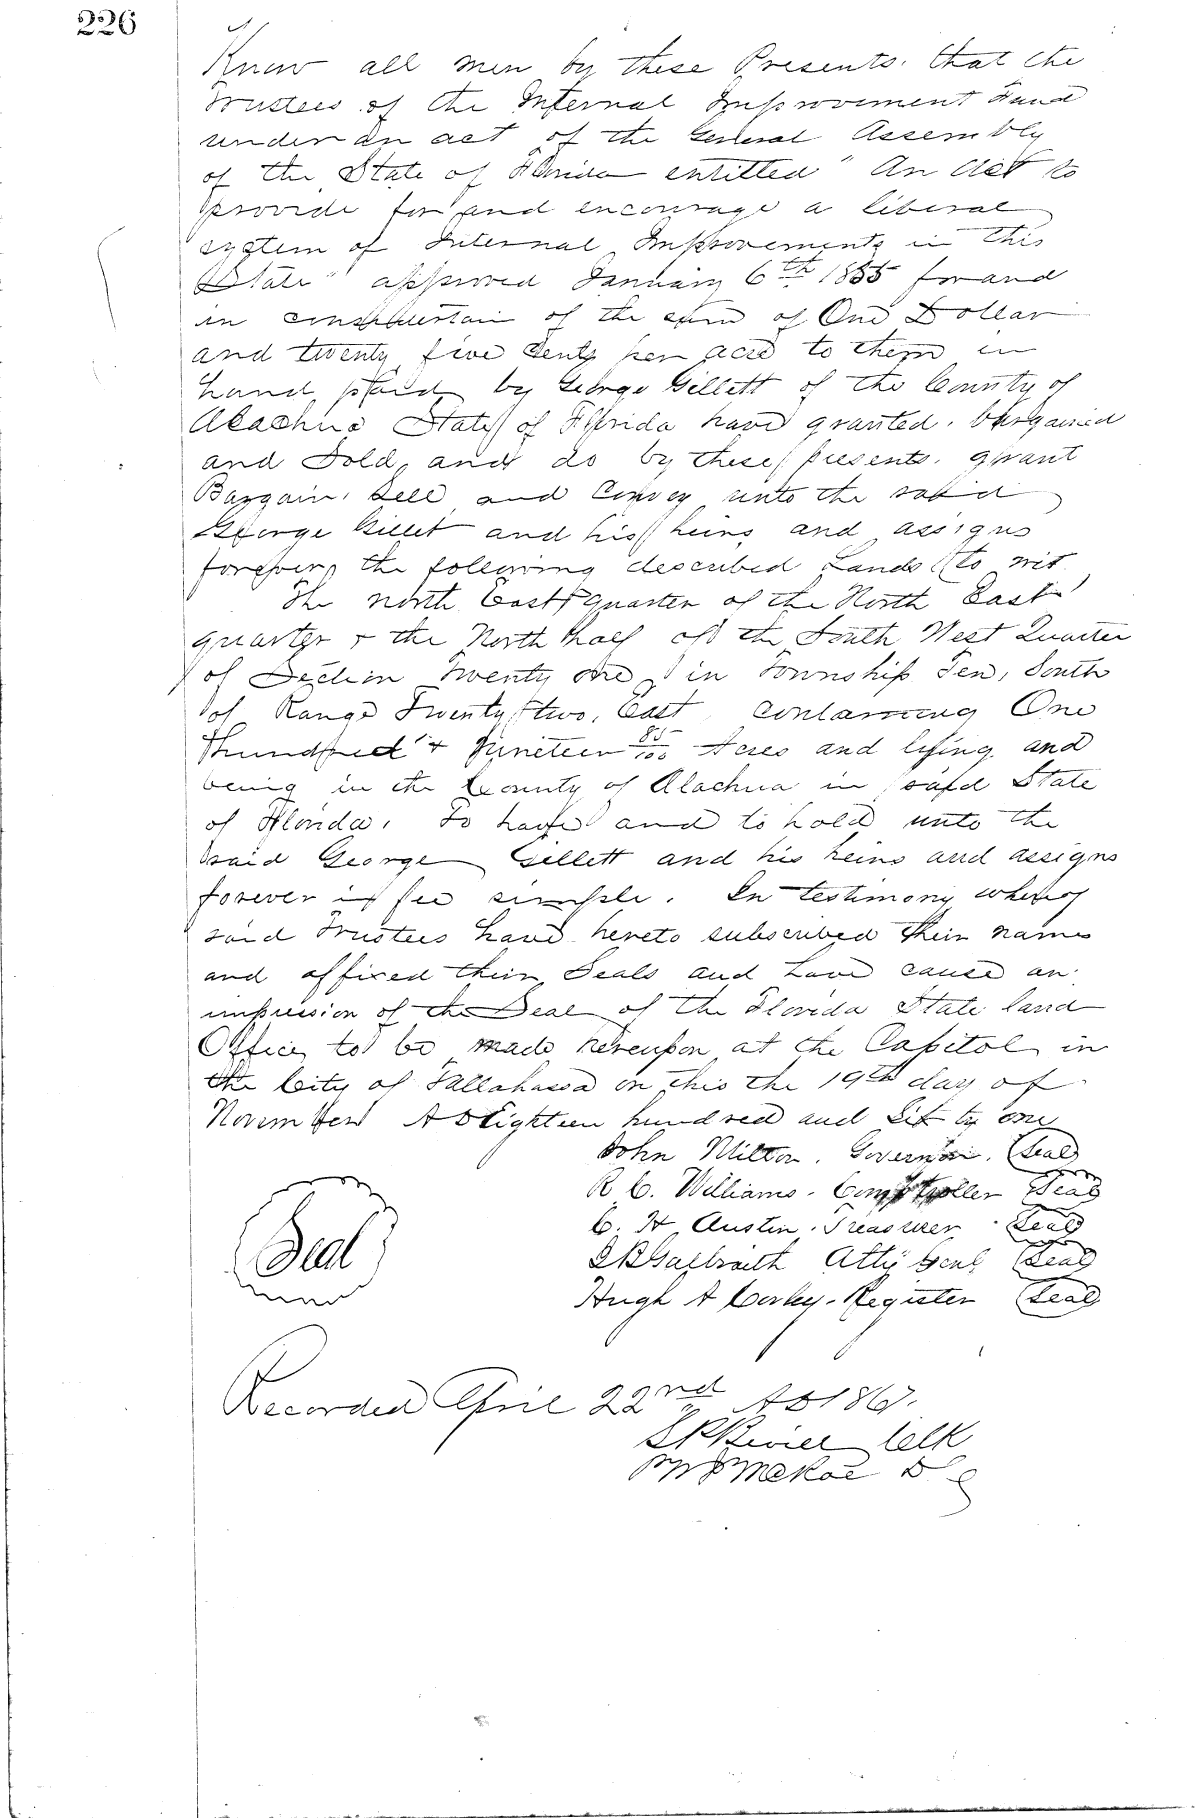 226
Know all men by these Presents. that the
Trustees of the Internal Improvement Fund
under an act of the General Assembly
of the State of Florida entitled "An Act to
provide for and encourage a liberal
system of Internal Improvements in this
State" approved January 6th 1855 for and
in consideration of the sum of One Dollar
and twenty five Cents per acre to them in
hand paid by George Gillett of the County of
Alachua State of Florida have granted. bargained
and Sold, and do by these presents. grant
Bargain. Sell and Convey unto the said
George Gillet and his heirs and assigns
forever, the following described Lands to wit
The north East quarter of the North East
quarter & the North half of the South West Quarter
of Section Twenty one in Township Ten, South
of Range Twenty two, East, containing One
Hundred & Nineteen 85/100 Acres and lying and
being in the County of Alachua in said State
of Florida. To have and to hold unto the
said George Gillett and his heirs and assigns
forever in fee simple. In testimony whereof
said Trustees have hereto subscribed their names
and affixed their Seals and have cause an
impression of the Seal of the Florida State land
Office, to be made hereupon at the Capitol in
the City of Tallahassa on this the 19th day of
November A D Eighteen hundred and Sixty one
John Milton. Governor. (Seal)
R C. Williams. Comptroller (Seal)
C. H. Austin. Treasurer. (Seal)
Seal
Galbraith Atty Genl (Seal)
Hugh A Corley. Register (Seal)
Recorded April 22nd A D 1867.
Bevill Clk
McRae D C